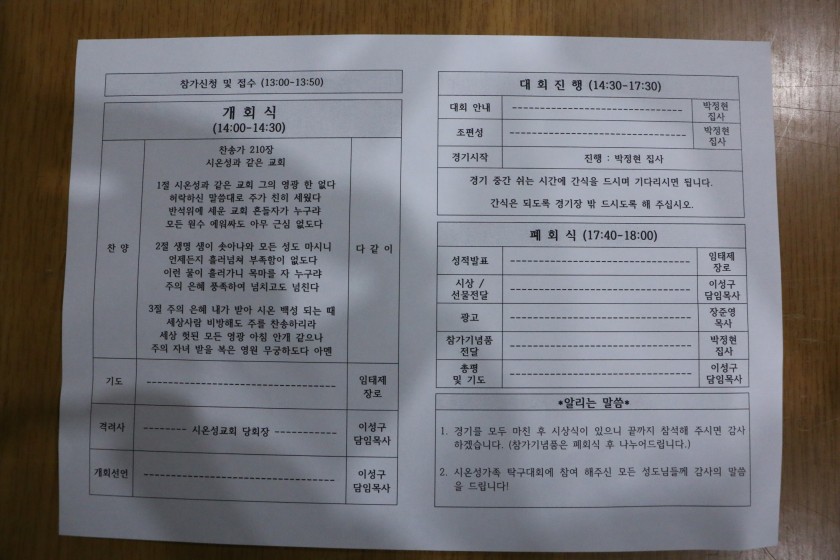 참가신청 및 접수 (13:00-13:50)
개 회 식
(14:00-14:30)
찬 양
찬송가 210장
시온성과 같은 교회
1절 시온성과 같은 교회 그의 영광 한 없다
허락하신 말씀대로 주가 친히 세웠다
반석위에 세운 교회 흔들자가 누구랴
모든 원수 에워싸도 아무 근심 없도다
2절 생명 샘이 솟아나와 모든 성도 마시니
언제든지 흘러넘쳐 부족함이 없도다
이런 물이 흘러가니 목마를 자 누구랴
주의 은혜 풍족하여 넘치고도 넘친다
3절 주의 은혜 내가 받아 시온 백성 되는 때
세상사람 비방해도 주를 찬송하리라
세상 헛된 모든 영광 아침 안개 같으나
주의 자녀 받을 복은 영원 무궁하도다 아멘
다 같 이
기도 -------------------------------- 임태제
장로
격려사 -------- 시온성교회 당회장 -------- 이성구
담임목사
개회선언 -------------------------------- 이성구
담임목사
대 회 진 행 (14:30-17:30)
대회 안내 ------------------------------ 박정현
집사
조편성 ------------------------------ 박정현
집사
경기시작 진행 : 박정현 집사
경기 중간 쉬는 시간에 간식을 드시며 기다리시면 됩니다.
간식은 되도록 경기장 밖 드시도록 해 주십시오.
폐 회 식 (17:40-18:00)
성적발표 -------------------------------- 임태제
장로
시상 /
선물전달 -------------------------------- 이성구
담임목사
광고 -------------------------------- 장준영
목사
참가기념품
전달 -------------------------------- 박정현
집사
총평
및 기도 -------------------------------- 이성구
담임목사
*알리는 말씀*
1. 경기를 모두 마친 후 시상식이 있으니 끝까지 참석해 주시면 감사
하겠습니다. (참가기념품은 폐회식 후 나누어드립니다.)
2. 시온성가족 탁구대회에 참여 해주신 모든 성도님들께 감사의 말씀
을 드립니다!